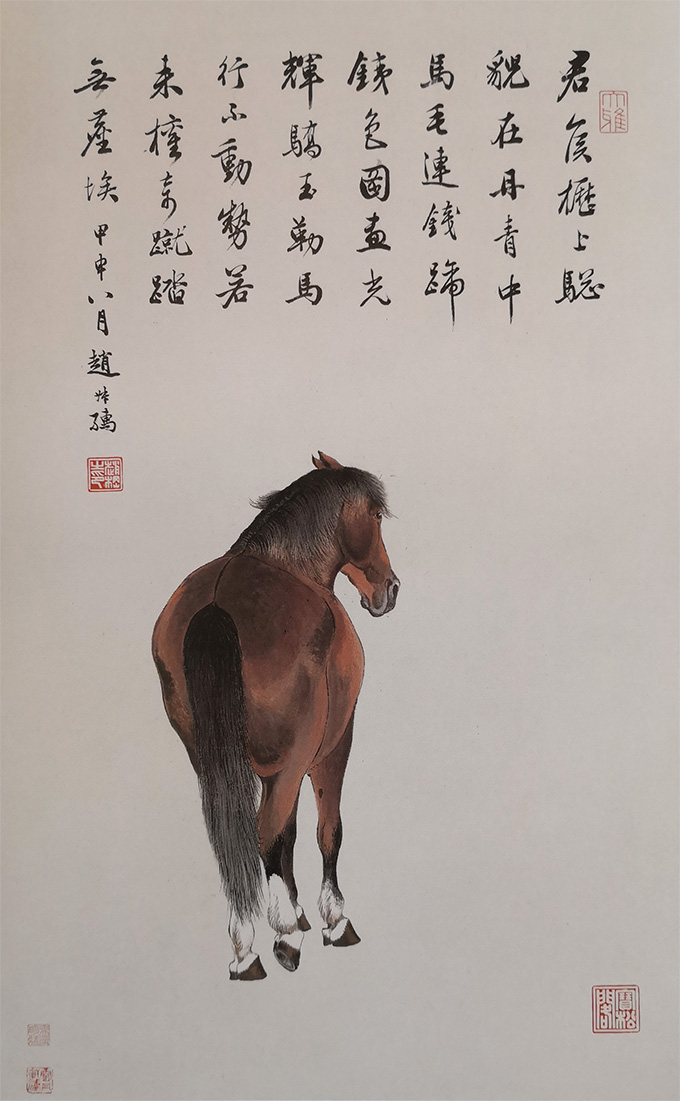 君矦櫪上驄
貌在丹青中
馬毛連錢蹄
銕色圖畫光
輝驕玉勒馬
行不動勢若
來權奇蹴踏
無塵埃 甲申八月 趙叔孺
大雅